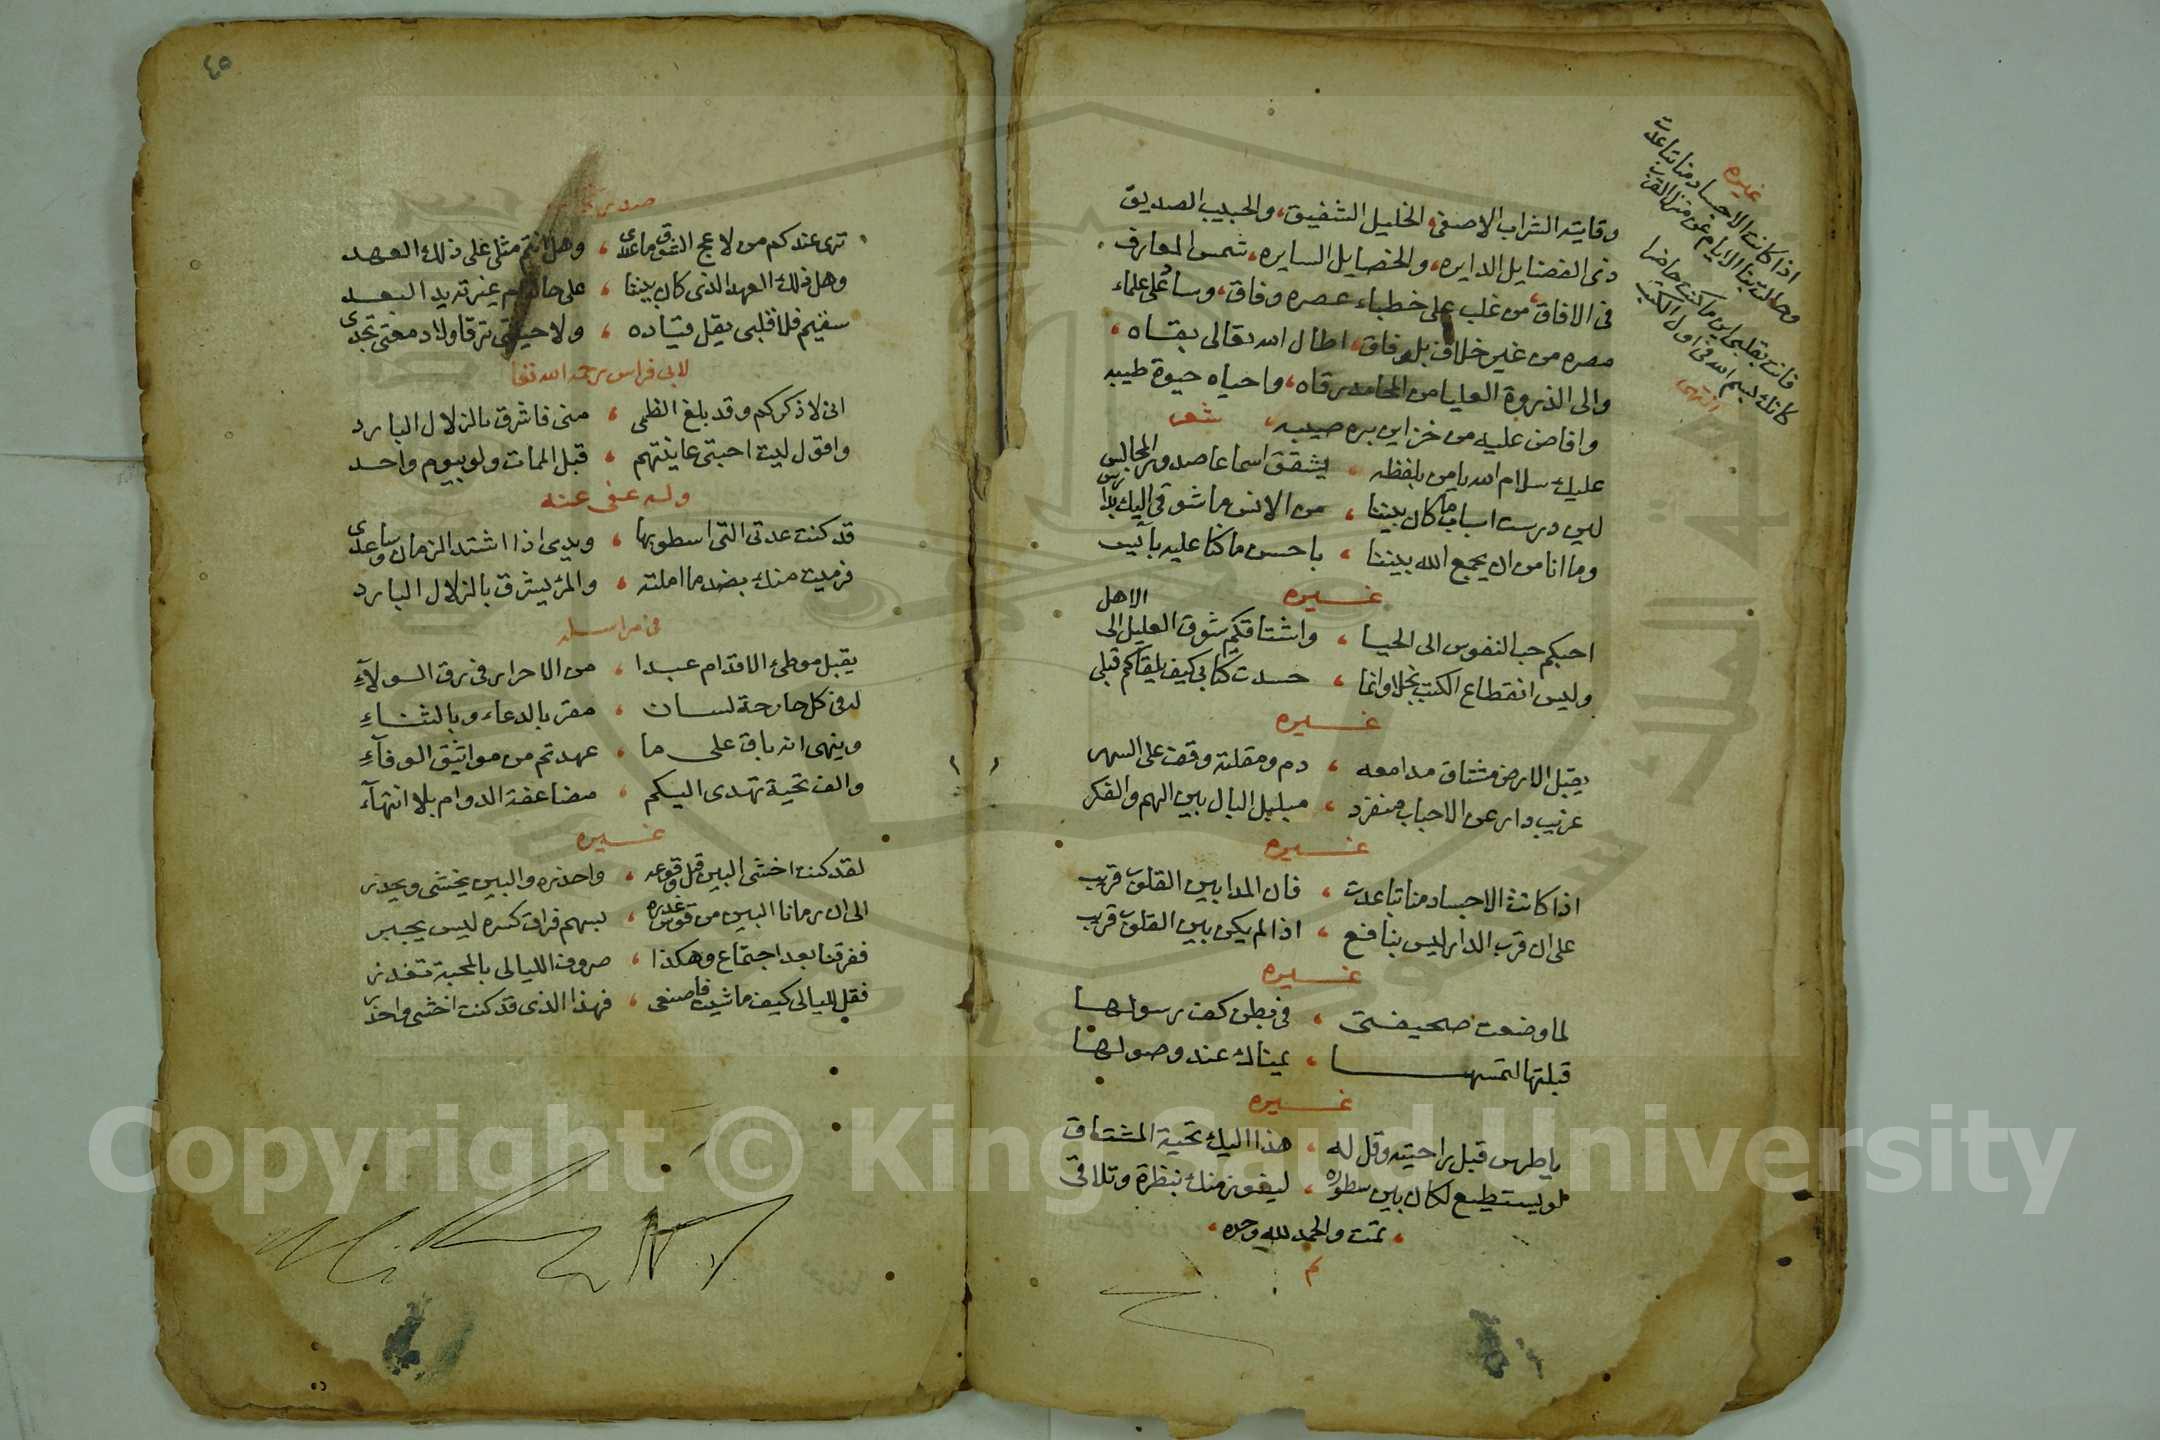 غيره
اذا كانت الاجساد منا تباعدت
وحالت بنا الايام عن منزل القرب
فانت بقلبى اين ما كنت حاضرا
كانك بسم الله فى اول الكتب
انتهى
وقايته التراب الاصفى، الخليل الشفيق، والحبيب الصديق
ذى الفضايل الدايره، والخصايل السايره، شمس المعارف
فى الافاق، من غلب على خطباء عصره وفاق، وسا على علماء
مصره من غير خلاف بل وفاق، اطال الله تعالى بقاه،
والى الذروة العليا من المحامد رقاه، واحياه حيوة طيبه
وافاض عليه من خزاين بره صيبه، شعر
عليك سلام الله يا من بلفظه ، يشقق اسماعا صدور المجالس
لين درست اسباب ما كان بيننا ، من الانس ما شوقى اليك بدارس
وما انا من ان يجمع الله بيننا ، باحسن ما كنا عليه بآيس
غيره
احبكم حب النفوس الى الحيا ، واشتاقكم شوق العليل الى الاهل
وليس انقطاع الكتب بخلا وانما ، حسدت كتابى كيف يلقاكم قبلى
غيره
يقبل الارض مشتاق مدامعه ، دم ومقلته وقفت على السهر
غريب دار عن الاحباب منفرد ، مبلبل البال بين الهم والفكر
غيره
اذا كانت الاجساد منا تباعدت ، فان المدا بين القلوب قريب
على ان قرب الدار ليس بنافع ، اذا لم يكن بين القلوب قريب
غيره
لما وضعت صحيفتى ، فى بطن كف رسولها
قبلتها لتمسها ، يمناك عند وصولها
غيره
يا طرس قبل راحتيه وقل له ، هذا اليك تحية المشتاق
لو يستطيع لكان بين سطوره ، ليفوز منك بنظرة وتلاقى
، تمت والحمد لله وحده ،
م
٤٥
ترى عندكم من لاعج الشوق ما عندى ، وهل انتم مثلى على ذلك العهد
وهل ذلك العهد الذى كان بيننا ، على حاله ام غير تريد البعد
سقيم فلا قلبى يقل قتاده ، ولا حيلتى ترقا ولا دمعتى تجدى
لابى فراس رحمه الله تعا
انى لاذكركم وقد بلغ الظمى ، منى فاشرق بالزلال البارد
واقول ليت احبتى عاينتهم ، قبل الممات ولو بيوم واحد
وله عفى عنه
قد كنت عدتى التى اسطو بها ، ويدى اذا اشتد الزمان وساعدى
فرميت منك بضد ما املته ، والمرء يشرق بالزلال البارد
فى مراسله
يقبل موطئ الاقدام عبدا ، من الاحرار فى رق الولآءِ
له فى كل جارحة لسان ، مقر بالدعاء وبالثناءِ
وينهى انه باق على ما ، عهدتم من مواثيق الوفآءِ
والف تحية تهدى اليكم ، مضاعفة الدوام بلا انتهآء
غيره
لقد كنت اخشى البين قبل وقوعه ، واحذره والبين يخشى ويحذر
الى ان رمانا البين من قوس غدره ، بسهم فراق كسره ليس يجبر
ففرقنا بعد اجتماع وهكذا ، صروف الليالى بالمحبة تغدر
فقل لليالى كيف ما شيت فاصنعى ، فهذا الذى قد كنت اخشى واحذر
Copyright © King Saud University